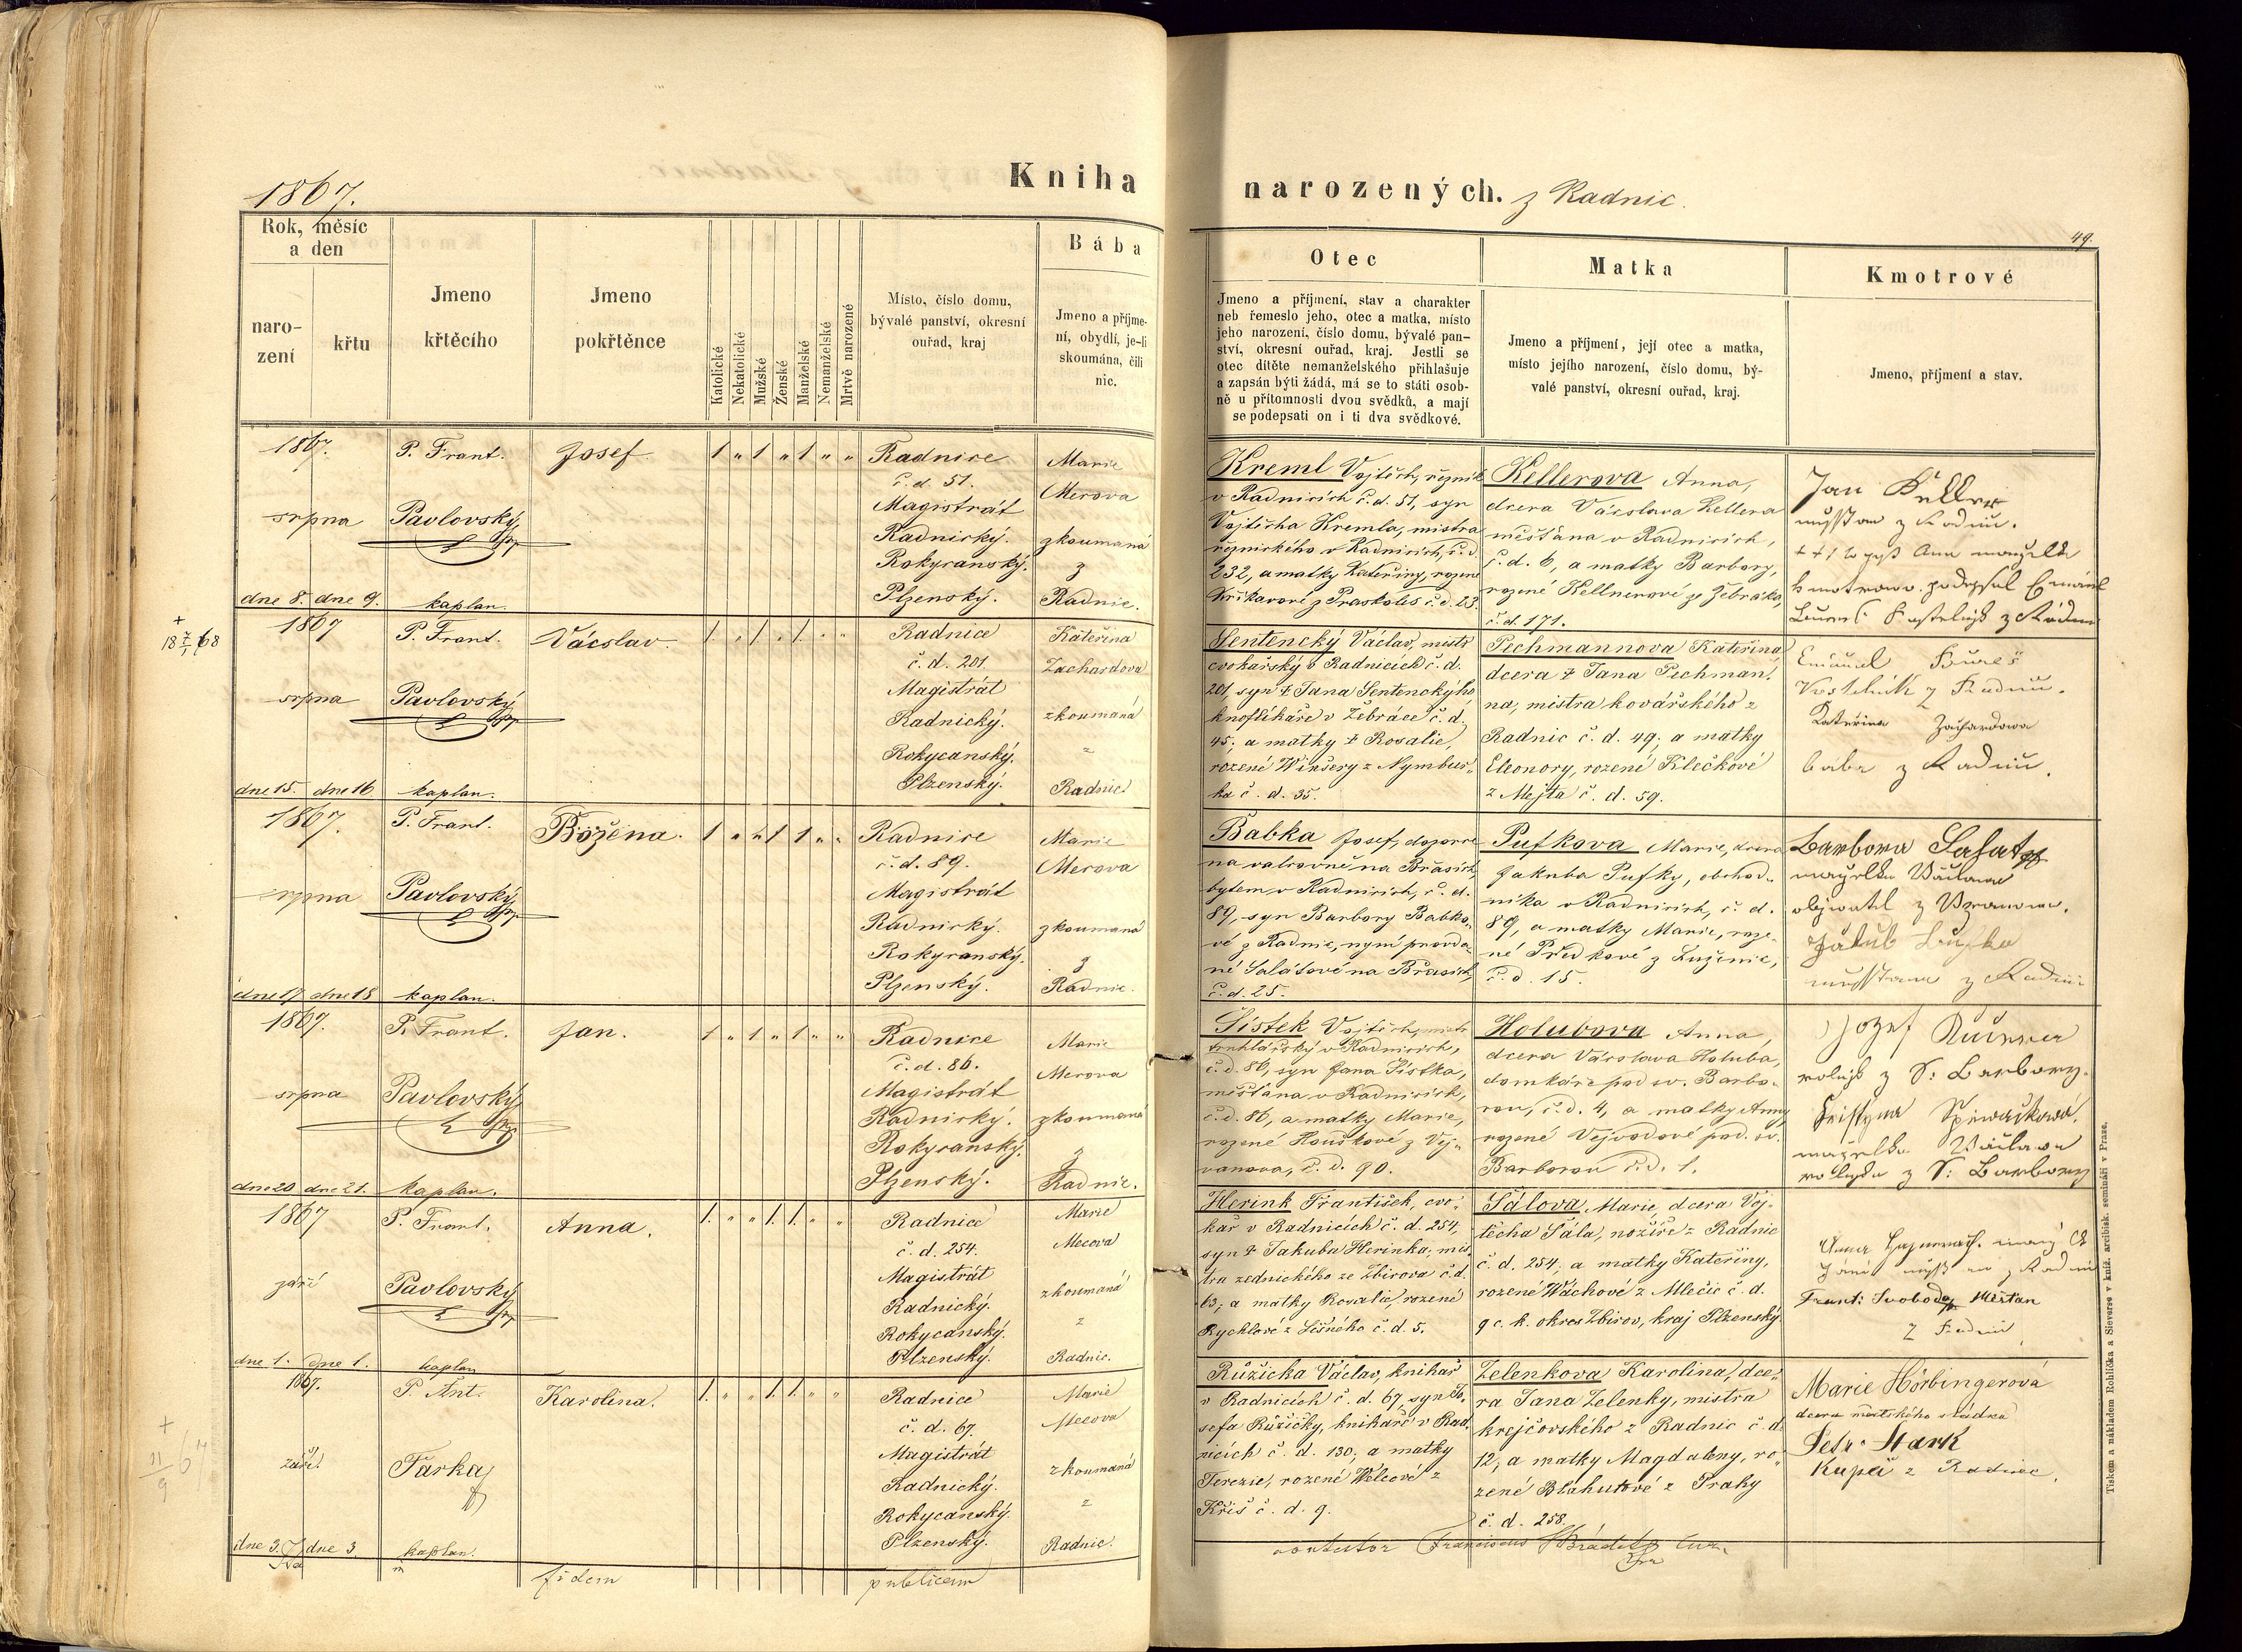 1867.
Kniha
narozených. z Radnic.
49.
Rok, měsíc
a den
naro-
zení
křtu
Jmeno
křtěcího
Jmeno
pokřtěnce
Katolické
Nekatolické
Mužské
Ženské
Manželské
Nemanželské
Mrtvě narozené
Místo, číslo domu,
bývalé panství, okresní
ouřad, kraj
Bába
Jmeno a příjme-
ní, obydlí, je-li
skoumána, čili
nic.
Otec
Jmeno a příjmení, stav a charakter
neb řemeslo jeho, otec a matka, místo
jeho narození, číslo domu, bývalé pan-
ství, okresní ouřad, kraj. Jestli se
otec dítěte nemanželského přihlašuje
a zapsán býti žádá, má se to státi osob-
ně u přítomnosti dvou svědků, a mají
se podepsati on i ti dva svědkové.
Matka
Jmeno a příjmení, její otec a matka,
místo jejího narození, číslo domu, bý-
valé panství, okresní ouřad, kraj.
Kmotrové
Jmeno, příjmení a stav.
1867.
srpna
dne 8. dne 9.
P. Frant.
Pavlovský
kaplan.
Josef.
1 „ 1 „ 1 „ „
Radnice
č. d. 51.
Magistrát
Radnický.
Rokycanský.
Plzenský.
Marie
Mecova
zkoumaná
z
Radnic.
Kreml Vojtěch, řezník
v Radnicích č. d. 51, syn
Vojtěcha Kremla, mistra
řeznického v Radnicích, č. d.
232, a matky Kateřiny, rozené
Křikavové z Praskoles č. d. 23.
Kellerova Anna,
dcera Vácslava Kellera
měšťana v Radnicích,
č. d. 6, a matky Barbory,
rozené Kellnerové ze Žebráka,
č. d. 171.
Jan Keller
z Radnic.
+ + + Anna manželka
podepsal Emanuel
Bureš z Radnic
+
18 7/1 68
1867
srpna
dne 15. dne 16.
P. Frant.
Pavlovský
kaplan.
Vácslav.
1. „ 1. „ 1. „ „
Radnice
č. d. 201.
Magistrát
Radnický.
Rokycanský.
Plzenský.
Kateřina
Zachardova
zkoumaná
z
Radnic.
Sentencký Václav, mistr
cvokařský v Radnicích č. d.
201, syn † Jana Sentenckýho,
knoflíkáře v Žebráce č. d.
45; a matky † Rosalie,
rozené Winšery z Nymbur-
ka č. d. 35.
Pechmannova Kateřina
dcera † Jana Pechman-
na, mistra kovářského z
Radnic č. d. 49; a matky
Eleonory, rozené Klečkové
z Mejta č. d. 59.
Emanuel Bureš
Kostelník z Radnic.
Kateřina Zachardowa
baba z Radnic.
1867.
srpna
dne 17 dne 18
P. Frant.
Pavlovský
kaplan.
Božena.
1 „ „ 1 1 „ „
Radnice
č. d. 89.
Magistrát
Radnický.
Rokycanský.
Plzenský.
Marie
Mecova
zkoumaná
z
Radnic.
Babka Josef, dozorce
na valcovně na Břasích,
bytem v Radnicích, č. d.
89, syn Barbory Babko-
vé z Radnic, nyní provda-
né Salátové na Břasích,
č. d. 25.
Pufkova Marie, dcera
Jakuba Pufky, obchod-
níka v Radnicích, č. d.
89, a matky Marie, roze-
né Předkové z
č. d. 15.
Barbora Salat
manželka Václava
z Wranowa.
Jakub Pufka
z Radnic
1867.
srpna
dne 20 dne 21.
P. Frant.
Pavlovský
kaplan.
Jan.
1 „ 1 „ 1 „ „
Radnice
č. d. 86.
Magistrát
Radnický.
Rokycanský.
Plzenský.
Marie
Mecova
zkoumaná
z
Radnic.
Šístek Vojtěch, mistr
truhlářský v Radnicích,
č. d. 86, syn Jana Šístka,
měšťana v Radnicích,
č. d. 86, a matky Marie,
rozené Houškové z Vej-
vanova, č. d. 90.
Holubova Anna,
dcera Vácslava Holuba,
domkáře pod sv. Barbo-
rou, č. d. 4, a matky Anny
rozené Vejvodové pod. sv.
Barborou č. d. 1.
Jozef
z S: Barbory.
Spiwačkowá,
manželka Václava
z S: Barbory
1867
září
dne 1. dne 1.
P. Frant.
Pavlovský
kaplan
Anna.
1. „ „ 1. 1. „ „
Radnice
č. d. 254.
Magistrát
Radnický.
Rokycanský.
Plzenský.
Marie
Mecova
zkoumaná
z
Radnic.
Herink František, cvo-
kař v Radnicích č. d. 254,
syn † Jakuba Herinka, mis-
tra zednického ze Zbirova č. d.
63; a matky Rosalie, rozené
Rychlové z Lišného č. d. 5.
Šálova Marie, dcera Voj-
těcha Šála, nožíře z Radnic
č. d. 254; a matky Kateřiny,
rozené Wáchové z Mlečic č. d.
9 c. k. okres Zbirov, kraj Plzenský.
Anna
Frant: Svoboda Měšťan
z Radnic
+
11/9 67
1867.
září
dne 3. dne 3.
P. Ant.
Farka
kaplan.
Karolina.
1. „ „ 1. 1. „ „
Radnice
č. d. 67.
Magistrát
Radnický.
Rokycanský.
Plzenský.
Marie
Mecova
zkoumaná
z
Radnic.
Růžicka Václav, knihař
v Radnicích č. d. 67, syn Jo-
sefa Růžičky, knihaře v Rad-
nicích č. d. 130; a matky
Terezie, rozené Welcové z
Kříš č. d. 9.
Zelenkova Karolina, dce-
ra Jana Zelenky, mistra
krejčovského z Radnic č. d.
12, a matky Magdaleny, ro-
zené Blahutové z Prahy
č. d. 258.
Marie Hörbingerová
dcera městského sládka
Petr Stark
Kupec z Radnic.
In fidem publicam
contestor Franciscus Hradetz
Tiskem a nákladem Rohlíčka a Sieverse v kníž. arcibisk. semináři v Praze.